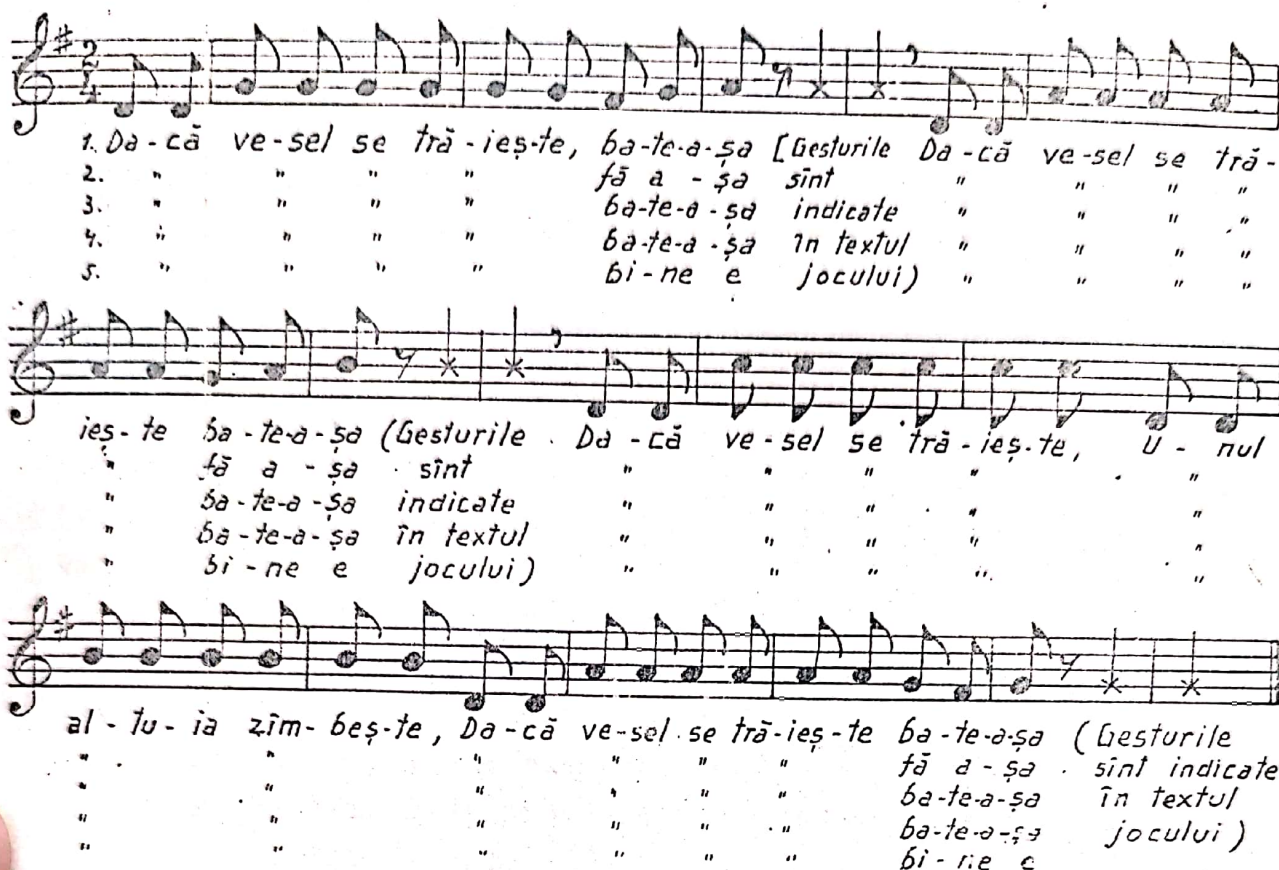 2
4
1. Da-că ve-sel se tră-ieș-te, ba-te-a-șa [Gesturile Da-că ve-sel se tră-
2. " " " " fă a-șa sînt " " " "
3. " " " " ba-te-a-șa indicate " " " "
4. " " " " ba-te-a-șa în textul " " " "
5. " " " " bi-ne e jocului) " " " "
ieș-te ba-te-a-șa (Gesturile Da-că ve-sel se tră-ieș-te, U-nul
" fă a-șa sînt " " " " "
" ba-te-a-șa indicate " " " " "
" ba-te-a-șa în textul " " " " "
" bi-ne e jocului) " " " " "
al-tu-ia zîm-beș-te, Da-că ve-sel se tră-ieș-te ba-te-a-șa (Gesturile
" " " " " " fă a-șa sînt indicate
" " " " " " ba-te-a-șa în textul
" " " " " " ba-te-a-șa jocului)
" " " " " " bi-ne e